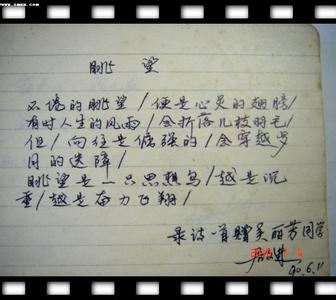 眺望
不倦的眺望/便是心灵的翅膀/
有时人生的风雨/会折落几枝羽毛/
但/向往是倔强的/会穿越岁
月的迷障/
眺望是一只思想鸟/越是沉
重/越是奋力飞翔/
录诗一首赠吴丽芳同学
90.6.11